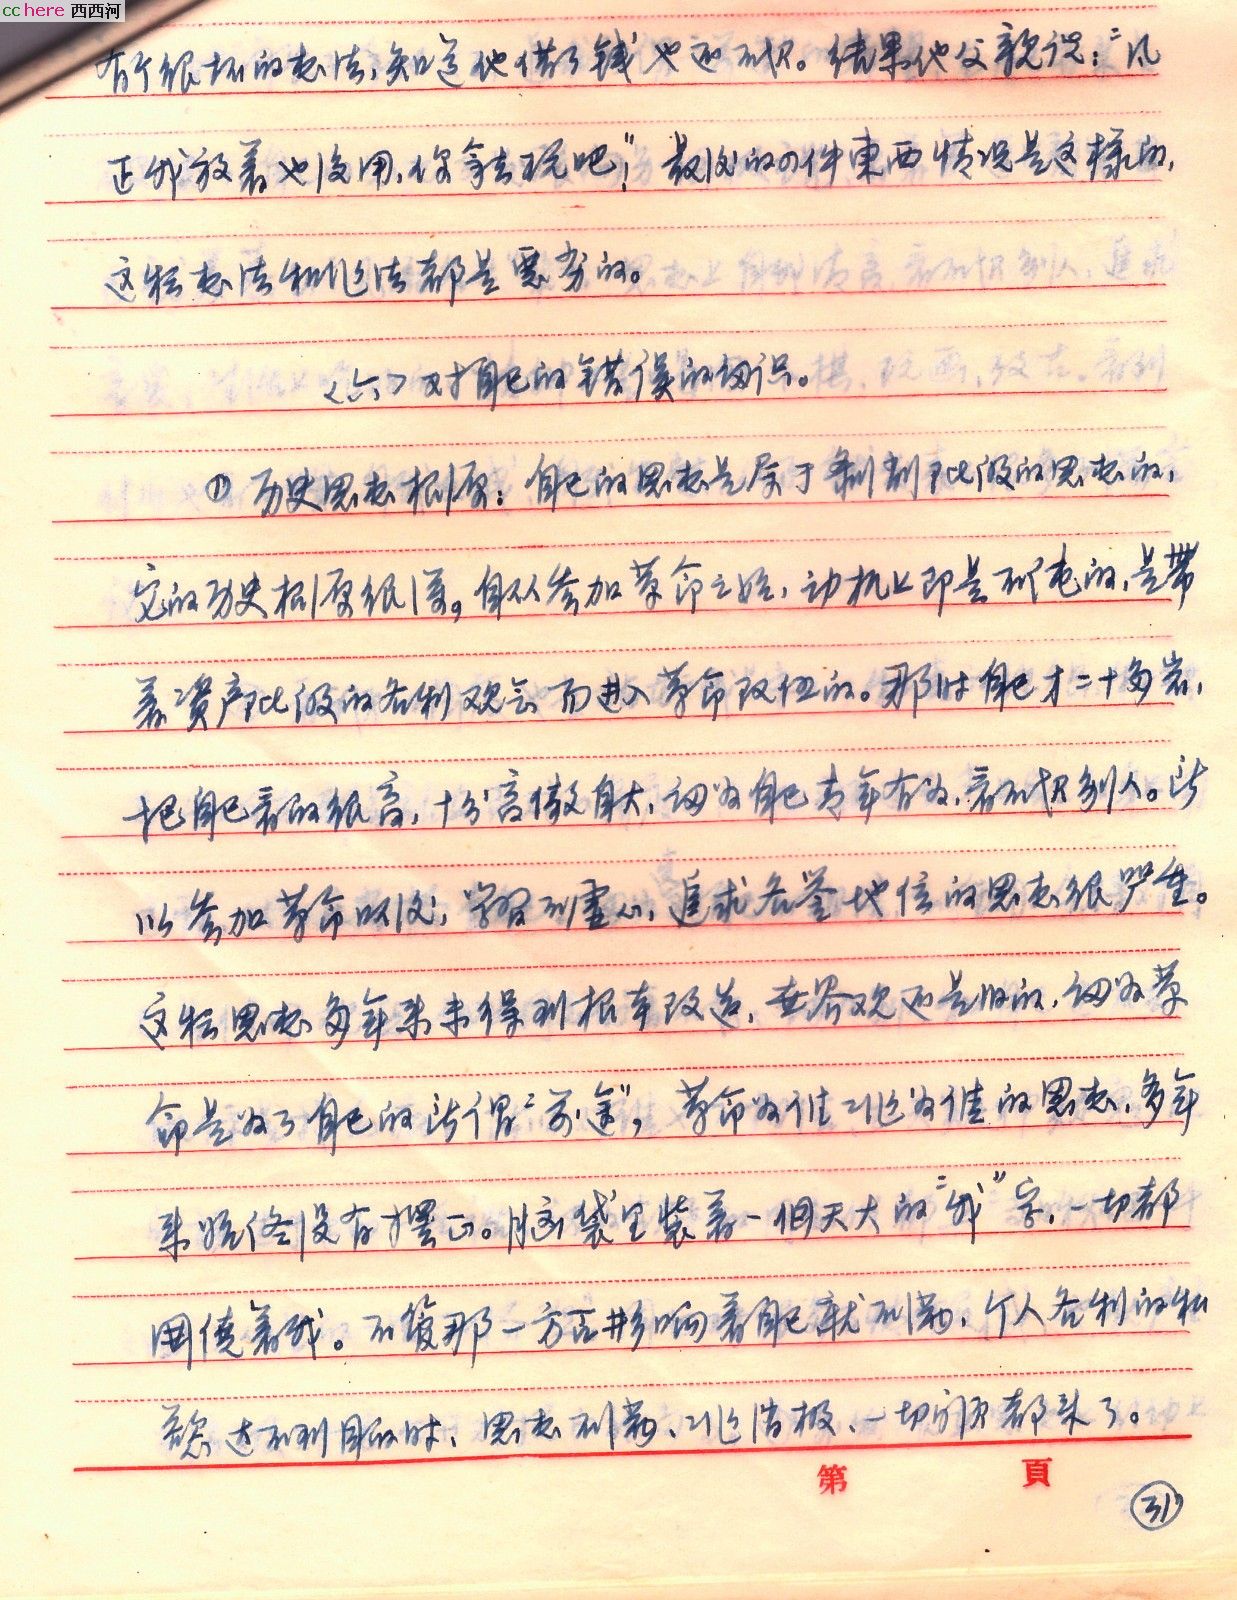 cchere 西西河
有个很坏的想法,知道他借了钱也还不起。结果他父亲说:“反
正我放着也没用,你拿去玩吧!”最后的四件東西情况是这样的,
这种想法和作法都是恶劣的。
<六>对自己的错误的认识。
① 历史思想根原:自己的思想是属于剥削阶级的思想的,
它的历史根原很深。自从参加革命之始,动机上即是不纯的,是带
着資产阶级的名利观念而进入革命队伍的。那时自己才二十多岁,
把自己看的很高,十分高傲自大,认为自己青年有为,看不起别人。所
以参加革命以后,学習不虚心,追求名誉地位的思想很严重。
这种思想多年来未得到根本改造,世界观还是旧的,认为革
命是为了自己的所谓“前途”,革命为谁工作为谁的思想,多年
来始终没有摆正。脑袋里装着一個天大的“我”字,一切都
围绕着我。不管那一方面影响着自己就不满,个人名利的私
欲达不到目的时,思想不满、工作消极、一切都来了。
第 頁
31